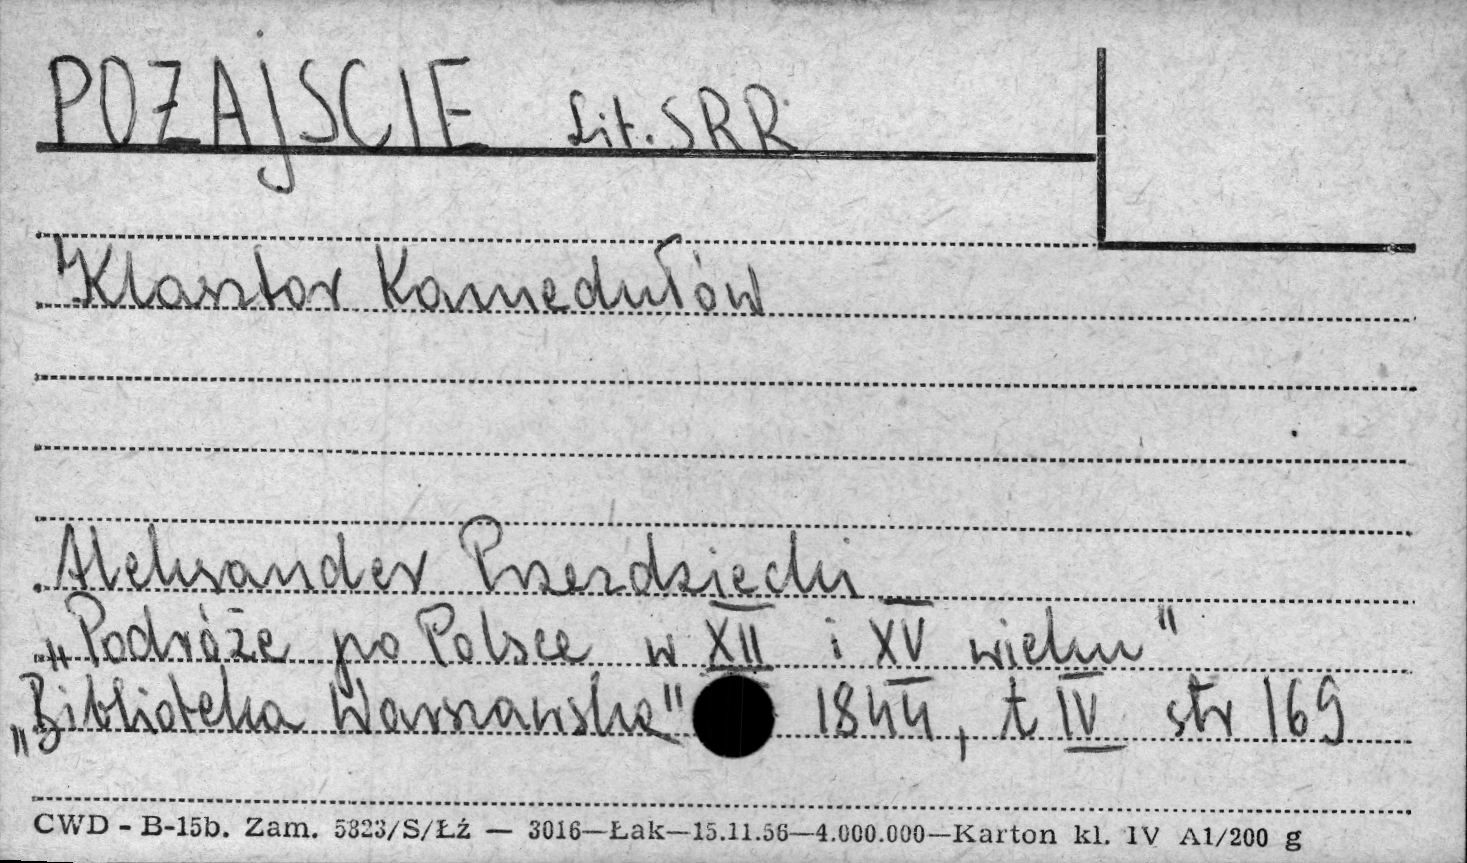 POŻAJŚCIE Lit. SRR
Klasztor Kamedułów
Aleksander Przezdziecki
„Podróże po Polsce w XII i XV wieku"
„Biblioteka Warszawska" 1844, t IV str 169
CWD - B-15b. Zam. 5323/S/Łź — 3016—Łak—15.11.56—4.000.000—Karton kl. IV A1/200 g